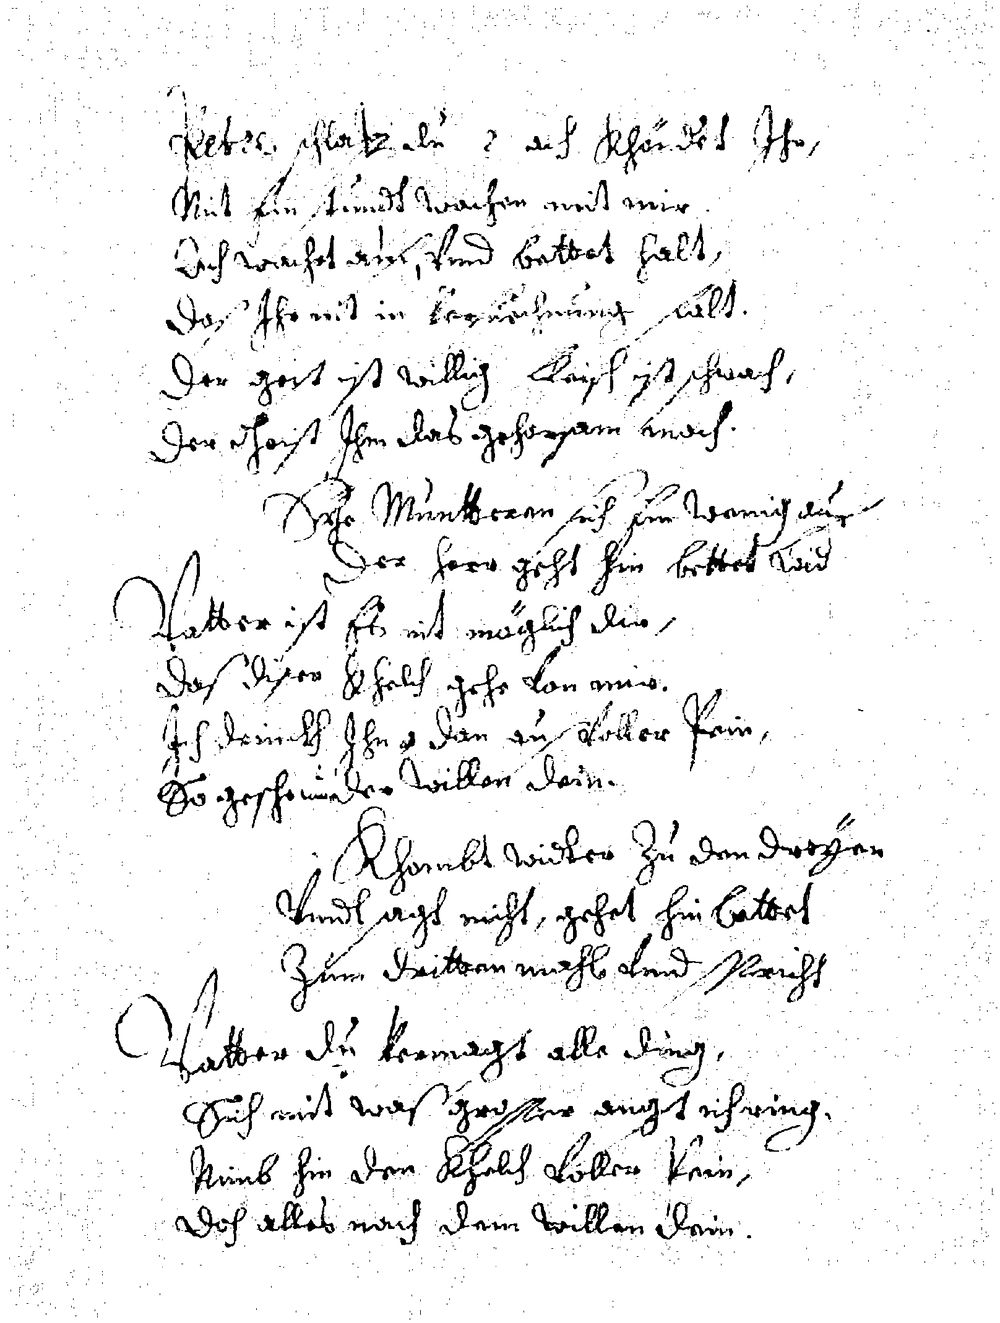 Peter schlafst du? ach khöndet Ihr,
Nit ein stundt wachen mit mir.
Ach wachet auf, Vnd bettet halt,
Das Ihr nit in versuechnung falt.
Der geist ist willig fleisch ist schwach,
Der Christ Ihm das gehorsam mach.
Sye Mundteren sich ein wenig auf
Der herr geht hin bettet wid
Vatter ist Es nit möglich dir,
Das diser Khelch gehe von mir.
Ich drinckh Ihn dan aus voller Pein,
So gescheh der willen dein.
Khombt wider Zu den dreÿen
Vndt sagt nicht, gehet hin bettet
Zum dritten mahl vnd spricht
Vatter du vermagst alle ding,
Sich mit was grosser angst ich ring.
Nimb hin den Khelch voller Pein,
Doch alles nach dem willen dein.